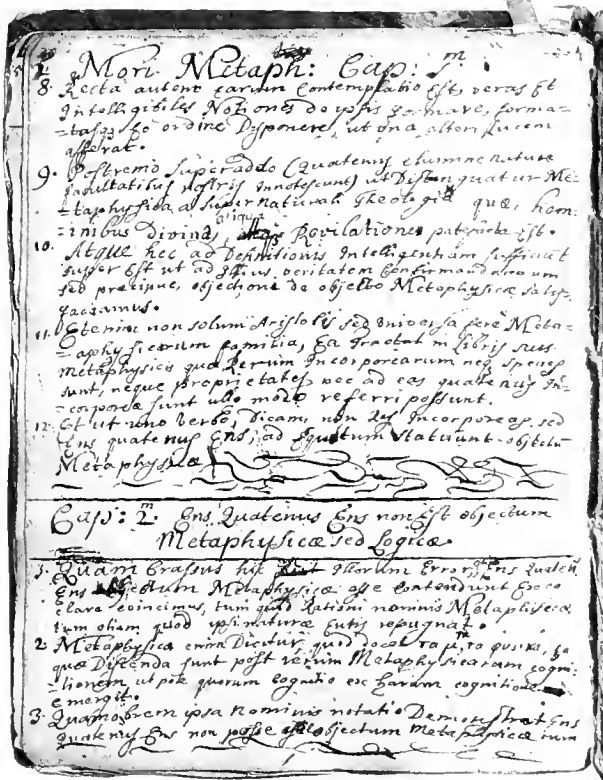 Mori Metaph: Cap: 1m
8. Recta autem earum Contemplatio Est, veras Et
Intelligibiles Notiones de ipsis formare, forma=
=tasq Eo ordine Disponere, ut una alteri Lucem
afferat.
9. Postremo superaddo (Quatenus Naturæ
facultatibus nostris Innotescunt) ut Distinguatur Me=
=taphysica a supernaturali Theologiâ quæ, hom=
=inibus Divinâ, aliqua Revilatione patefacta Est.
10. Atque hec ad Definitionis Intelligentiam sufficiant
super Est ut ad Illius veritatem Confirmandam
sed precipue, objectione de objecto Metaphysicæ satis=
faciamus.
11. Etenim non solum Aristotelis sed universa fere Meta=
=aphysicorum familia, Ea Tractat in Libris suis
metaphysicis quæ Rerum Incorporearum neq species
sunt, neque proprietates nec ad eas quatenus In=
=corporeæ sunt ullo modo referri possunt.
12. Et ut uno verbo, Dicam, non Res Incorporeas, sed
Ens quatenus Ens, ad statuunt objectum
Metaphysicæ
Cap: 2m. Ens Quatenus Ens non Est objectum
Metaphysicæ sed Logicæ.
1. Quam Crassus hic illorum Error, Ens Quaten
Ens objectum Metaphysicæ esse Contendunt
clare evincimus, tum quod Rationi nominis Metaphisicæ
tum etiam quod ipsi naturæ Entis repugnat.
2. Metaphysica enim Dicitur, quod docet τα μετα τα φυσικα, Ea
quæ Discenda sunt post rerum Metaphysicarum cogni=
=tionem ut pote quorum cognitio ex harum cognitione
emergit.
3. Quamobrem ipsa nominis notatio Demonstrat Ens
Quatenus Ens non posse esse objectum metaphysicæ tum